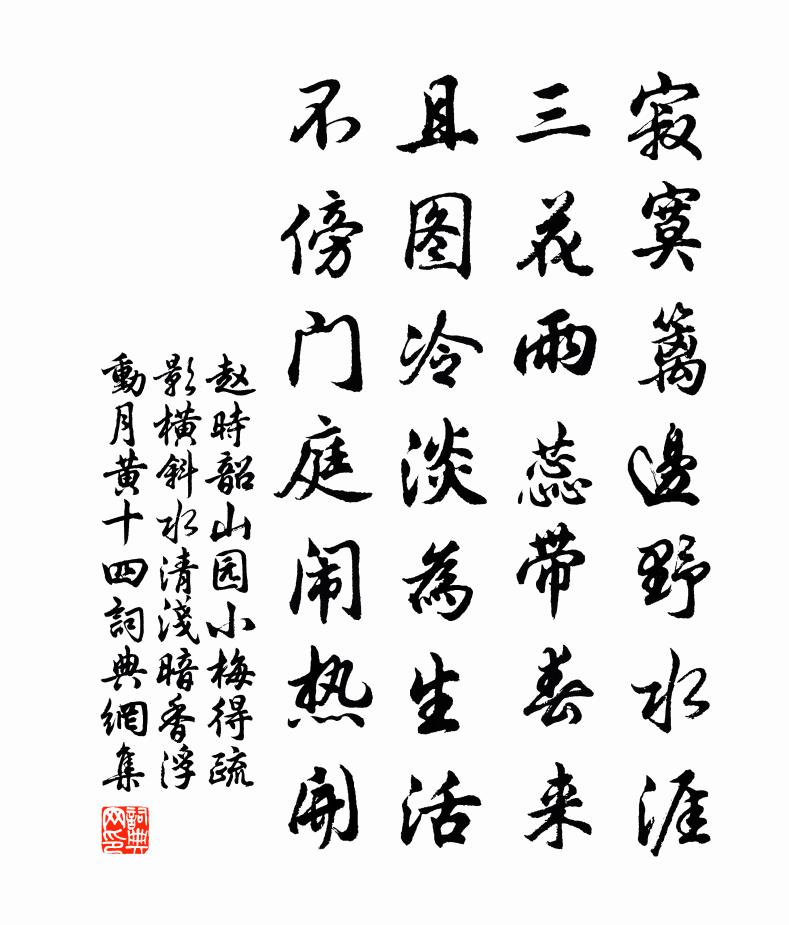 寂寞篱邊野水涯
三花兩蕊带春来
且图冷淡為生活
不傍门庭闹热開
赵時韶山园小梅得疏
影横斜水清淺暗香浮
動月黄十四詞典網集
詞典网印